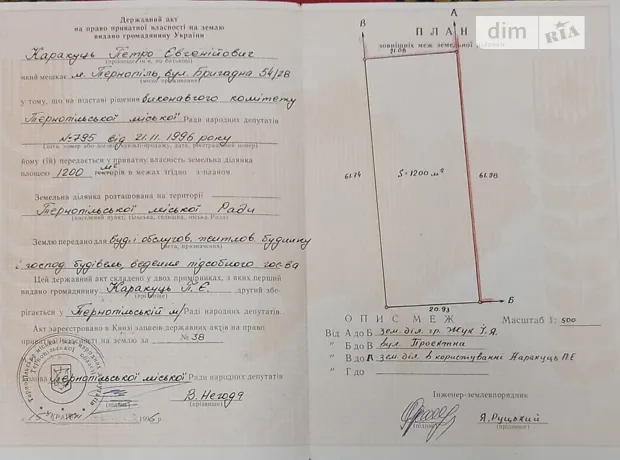 Державний акт
на право приватної власності на землю
видано громадянину України
Каракуць Петро Євгенійович
(прізвище, ім'я, по батькові)
який мешкає м. Тернопіль, вул. Бригадна 54/28
у тому, що на підставі рішення виконавчого комітету
Тернопільської міської Ради народних депутатів
№795 від 21.11.1996 року
йому (їй) передається у приватну власність земельна ділянка
площею 1200 м² гектарів в межах згідно з планом.
Земельна ділянка розташована на території
Тернопільської міської Ради
Землю передано для буд. і обслугов. житлов. будинку
і господ. будівель, ведення підсобного гос-ва
Цей державний акт складено у двох примірниках, з яких перший
видано громадянину Каракуць П.Є. другий збе-
рігається у Тернопільській м/ Раді народних депутатів.
Акт зареєстровано в Книзі записів державних актів на право
приватної власності на землю за № 38
Голова Тернопільської міської Ради народних депутатів
В. Негода
(прізвище)
УКРАЇНА
1996 р.
dim RIA
ПЛАН
зовнішніх меж земельної ділянки
В
А
21.08
61.74
S=1200 м²
61.98
20.93
Б
ОПИС МЕЖ
Масштаб 1: 500
Від А до Б зем. діл. гр. Жук І.Я.
" Б до В вул. Проектна
" В до А зем. діл. в користуванні Каракуць П.Є
" Г до
Інженер-землевпорядник
Я. Руцький
(підпис) (прізвище)